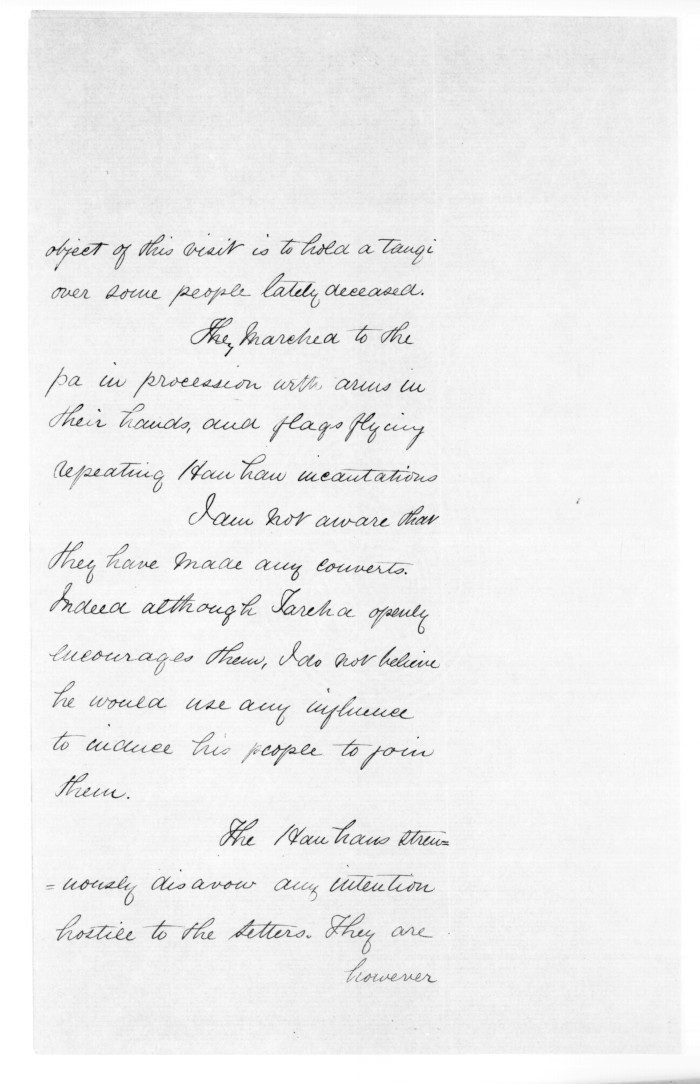 object of this visit is to hold a tangi
over some people lately deceased.
They marched to the
pa in procession with arms in
their hands, and flags flying
repeating Hau hau incantations
I am not aware that
they have made any converts.
Indeed although Tareha openly
encourages them, I do not believe
he would use any influence
to induce his people to join
them.
The Hau haus stren=
=uously disavow any intention
hostile to the Setters. They are
however